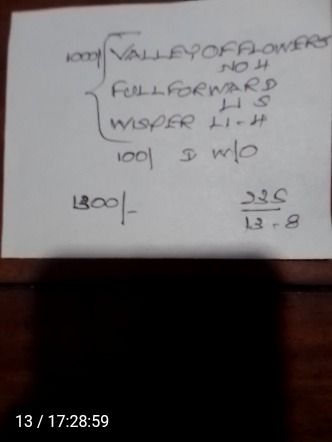 1000/ VALLEY OF FLOWERS
NO H
FULL FORWARD
LI S
WISPER LI-H
100/ D W/O
1300/-
235
13-8
13 / 17:28:59